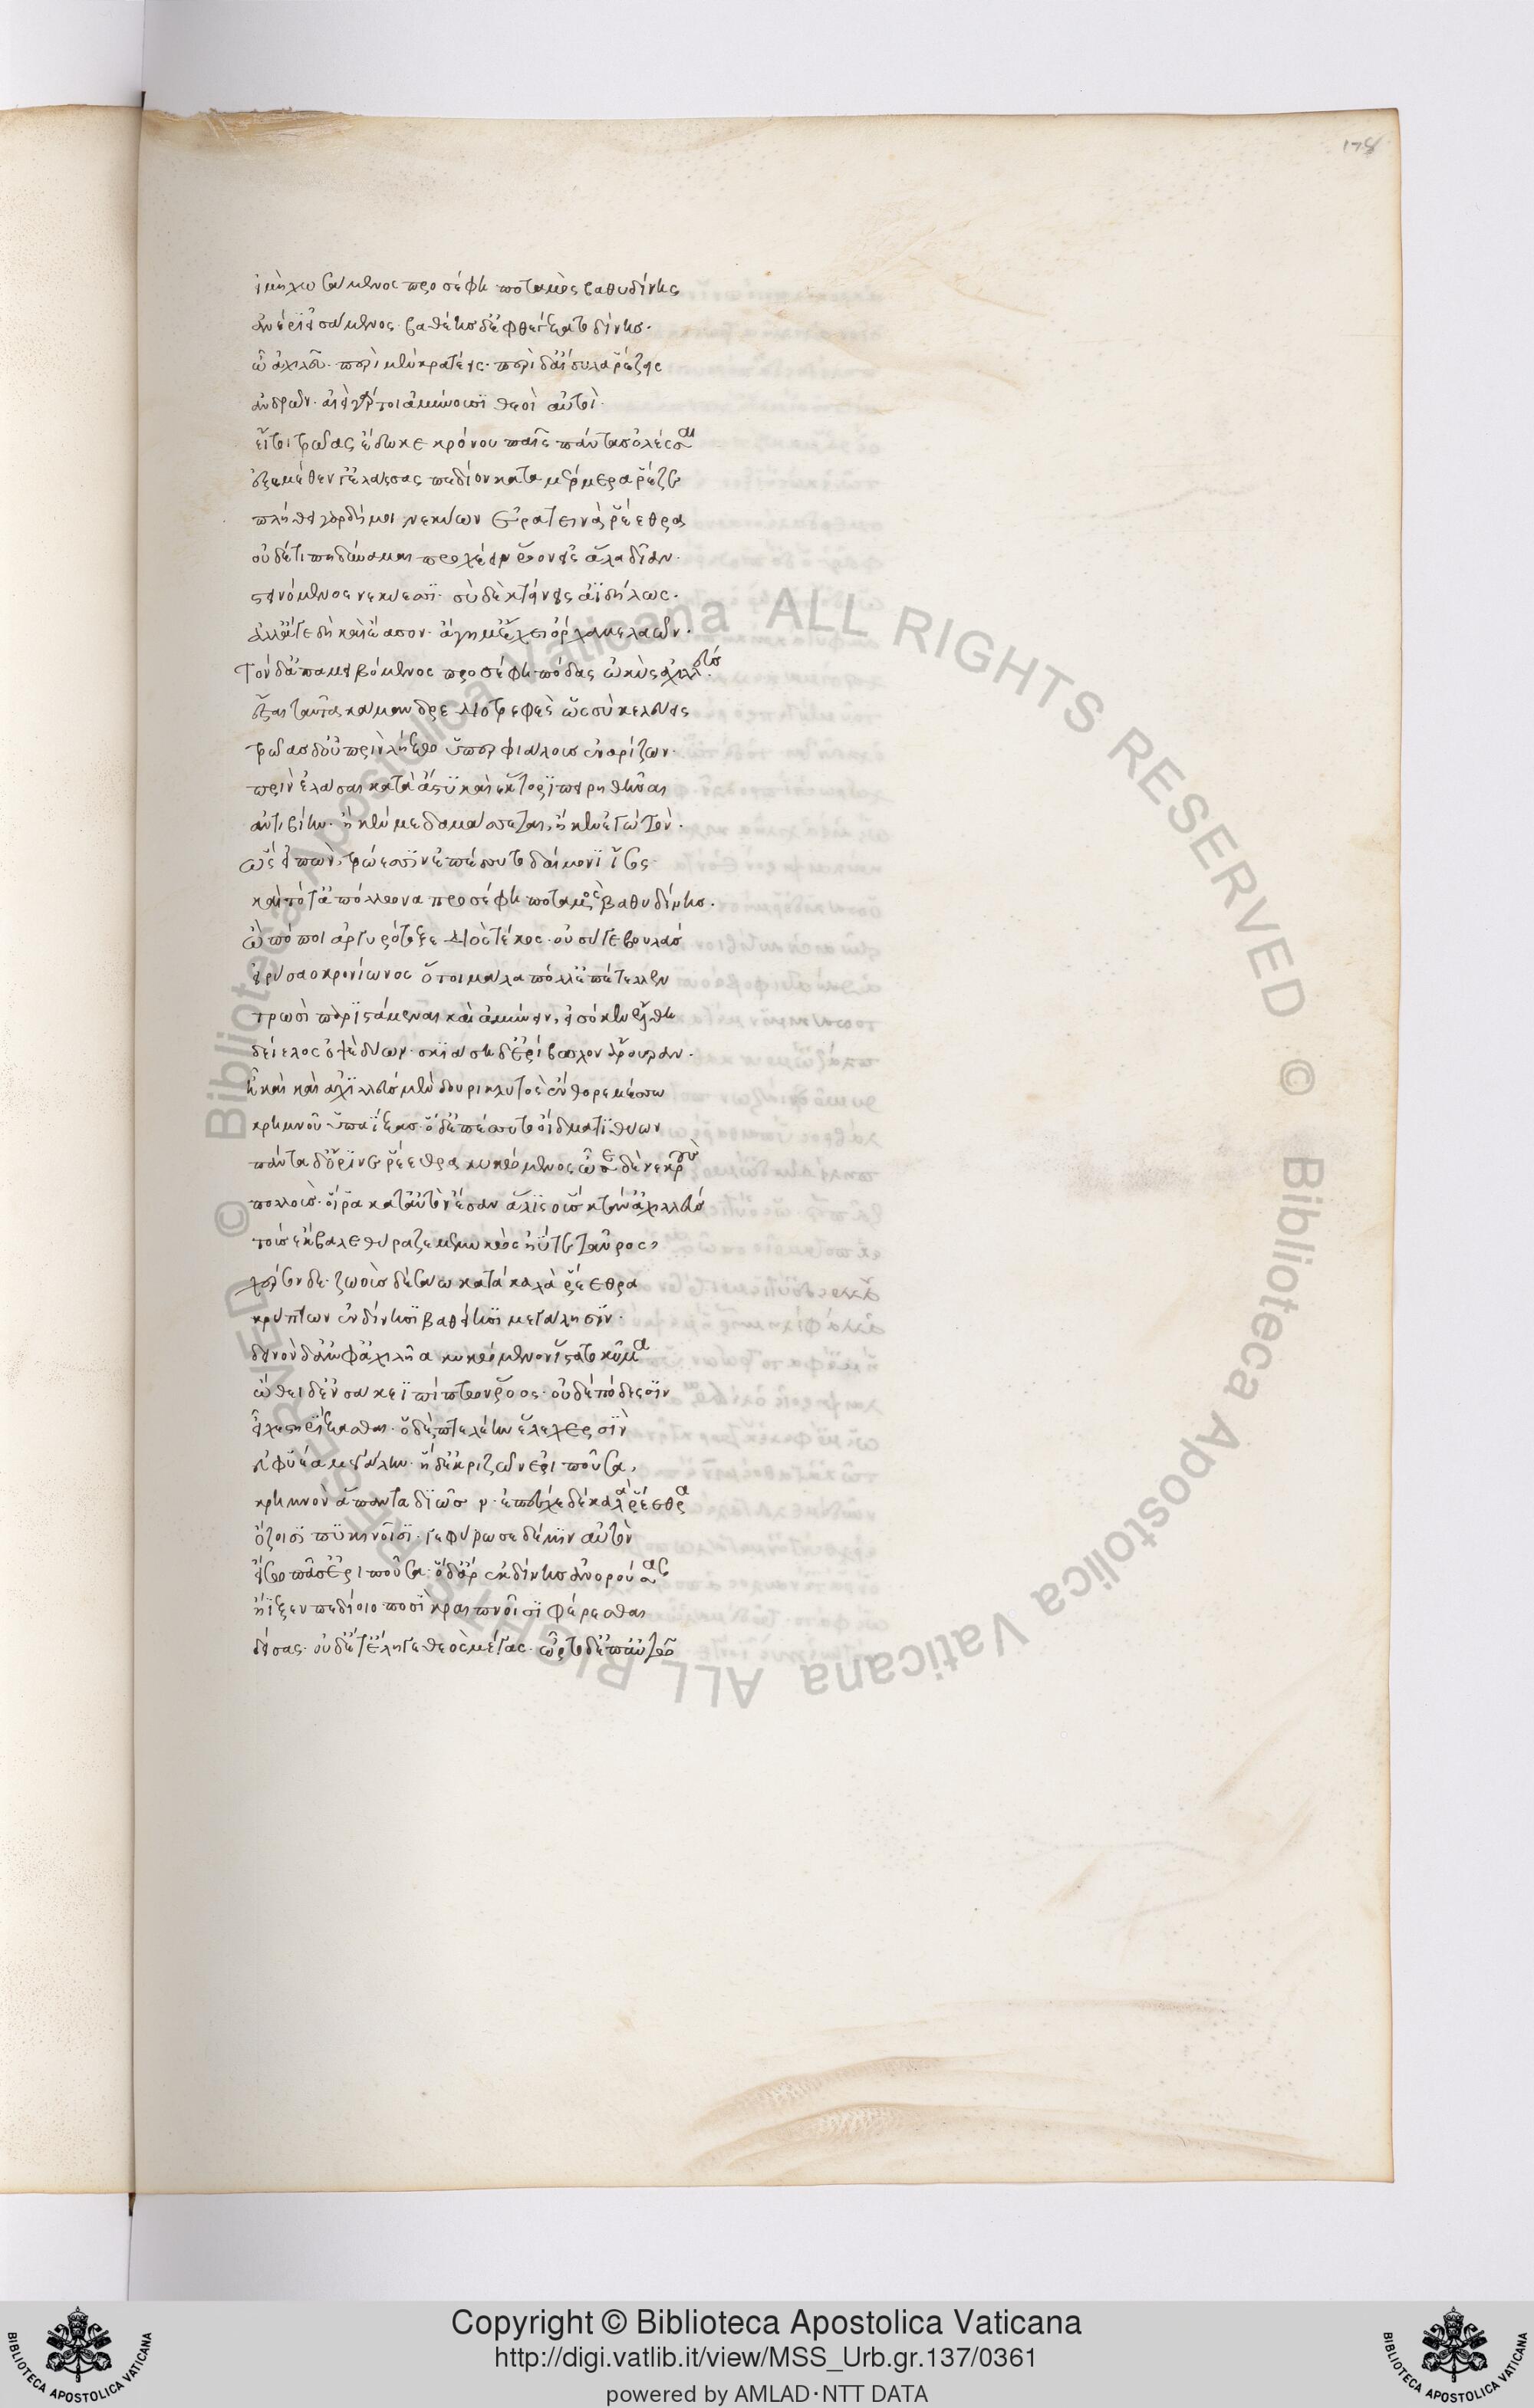 178
εἰ μὴ χωσάμενος προσέφη ποταμὸς βαθυδίνης
ἀνέρι εἰσάμενος· βαθέης δ' ἐφθέγξατο δίνης·
ὦ ἀχιλεῦ· περὶ μὲν κρατέεις· περὶ δ' αἴσυλα ῥέζεις
ἀνδρῶν· αἰεὶ γάρ τοι ἀμύνουσι θεοὶ αὐτοὶ·
εἴ τοι τρῶας ἔδωκε κρόνου παῖς πάντας ὀλέσσαι
ἐξ ἐμέθεν γ' ἐλάσας πεδίον κάτα μέρμερα ῥέζε
πλήθει γὰρ δή μοι νεκύων ἐρατεινὰ ῥέεθρα
οὐδέ τι πη δύναμαι προχέειν ῥόον εἰς ἅλα δῖαν·
στεινόμενος νεκύεσσι· σὺ δὲ κτείνεις ἀϊδήλως·
ἀλλ' ἄγε δὴ καὶ ἔασον· ἄγη μ' ἔχει ὄρχαμε λαῶν·
Τὸν δ' ἀπαμειβόμενος προσέφη πόδας ὠκὺς ἀχιλλεύς·
ἔσται ταῦτα σκάμανδρε διοτρεφὲς ὡς σὺ κελεύεις
τρῶας δ' οὐ πρὶν λήξω ὑπερφιάλους ἐναρίζων·
πρὶν ἔλσαι κατὰ ἄστυ καὶ ἕκτορι πειρηθῆναι
ἀντιβίην· ἤ κέν με δαμάσσεται, ἤ κεν ἐγὼ τόν·
ὣς εἰπὼν, τρώεσσιν ἐπέσσυτο δαίμονι ἶσος·
καὶ τότ' ἀπόλλωνα προσέφη ποταμὸς βαθυδίνης·
ὢ πόποι ἀργυρότοξε διὸς τέκος· οὐ σύ γε βουλὰς
εἰρύσαο κρονίωνος ὅ τοι μάλα πόλλ' ἐπέτελλεν
τρωσὶ παριστάμεναι καὶ ἀμύνειν, εἰσόκεν ἔλθῃ
δείελος ὀψὲ δύων· σκιάσῃ δ' ἐρίβωλον ἄρουραν·
ἦ καὶ ἀχιλλεὺς μὲν δουρικλυτὸς ἔνθορε μέσσω
κρημνοῦ ἀπαΐξας· ὁ δ' ἐπέσσυτο οἴδματι θύων
πάντα δ' ὄρινε ῥέεθρα κυκώμενος ὦσε δὲ νεκροὺς
πολλοὺς· οἵ ῥα κατ' αὐτὸν ἔσαν ἅλις οὓς κτάν' ἀχιλλεύς
τοὺς ἔκβαλε θύραζε μεμυκὼς ἠΰτε ταῦρος,
χέρσον δε· ζωοὺς δὲ σάω κατὰ καλὰ ῥέεθρα
κρύπτων ἐν δίνῃσι βαθείῃσι μεγάλῃσιν·
δεινὸν δ' ἀμφ' ἀχιλῆα κυκώμενον ἵστατο κῦμα
ὤθει δ' ἐν σάκεϊ πίπτων ῥόος· οὐδὲ πόδεσσιν
εἶχε στηρίξασθαι· ὁ δὲ πτελέην ἕλε χερσὶν
εὐφυέα μεγάλην· ἡ δ' ἐκ ριζῶν ἐριποῦσα,
κρημνὸν ἅπαντα διῶσεν· ἐπέσχε δὲ καλὰ ῥέεθρα
ὄζοισι πυκινοῖσι· γεφύρωσε δέ μιν αὐτὸν
εἴσω πᾶσ' ἐριποῦσα· ὁ δ' ἄρ' ἐκ δίνης ἀνορούσας
ἤϊξεν πεδίοιο ποσὶ κραιπνοῖσι φέρεσθαι
δείσας· οὐδέ τ' ἔληγε θεὸς μέγας· ὦρτο δ' ἐπ' αὐτῷ
Copyright © Biblioteca Apostolica Vaticana
http://digi.vatlib.it/view/MSS_Urb.gr.137/0361
powered by AMLAD·NTT DATA
BIBLIOTECA APOSTOLICA VATICANA
BIBLIOTECA APOSTOLICA VATICANA
© Biblioteca Apostolica Vaticana ALL RIGHTS RESERVED © Biblioteca Apostolica Vaticana ALL RIGHTS RESERVED